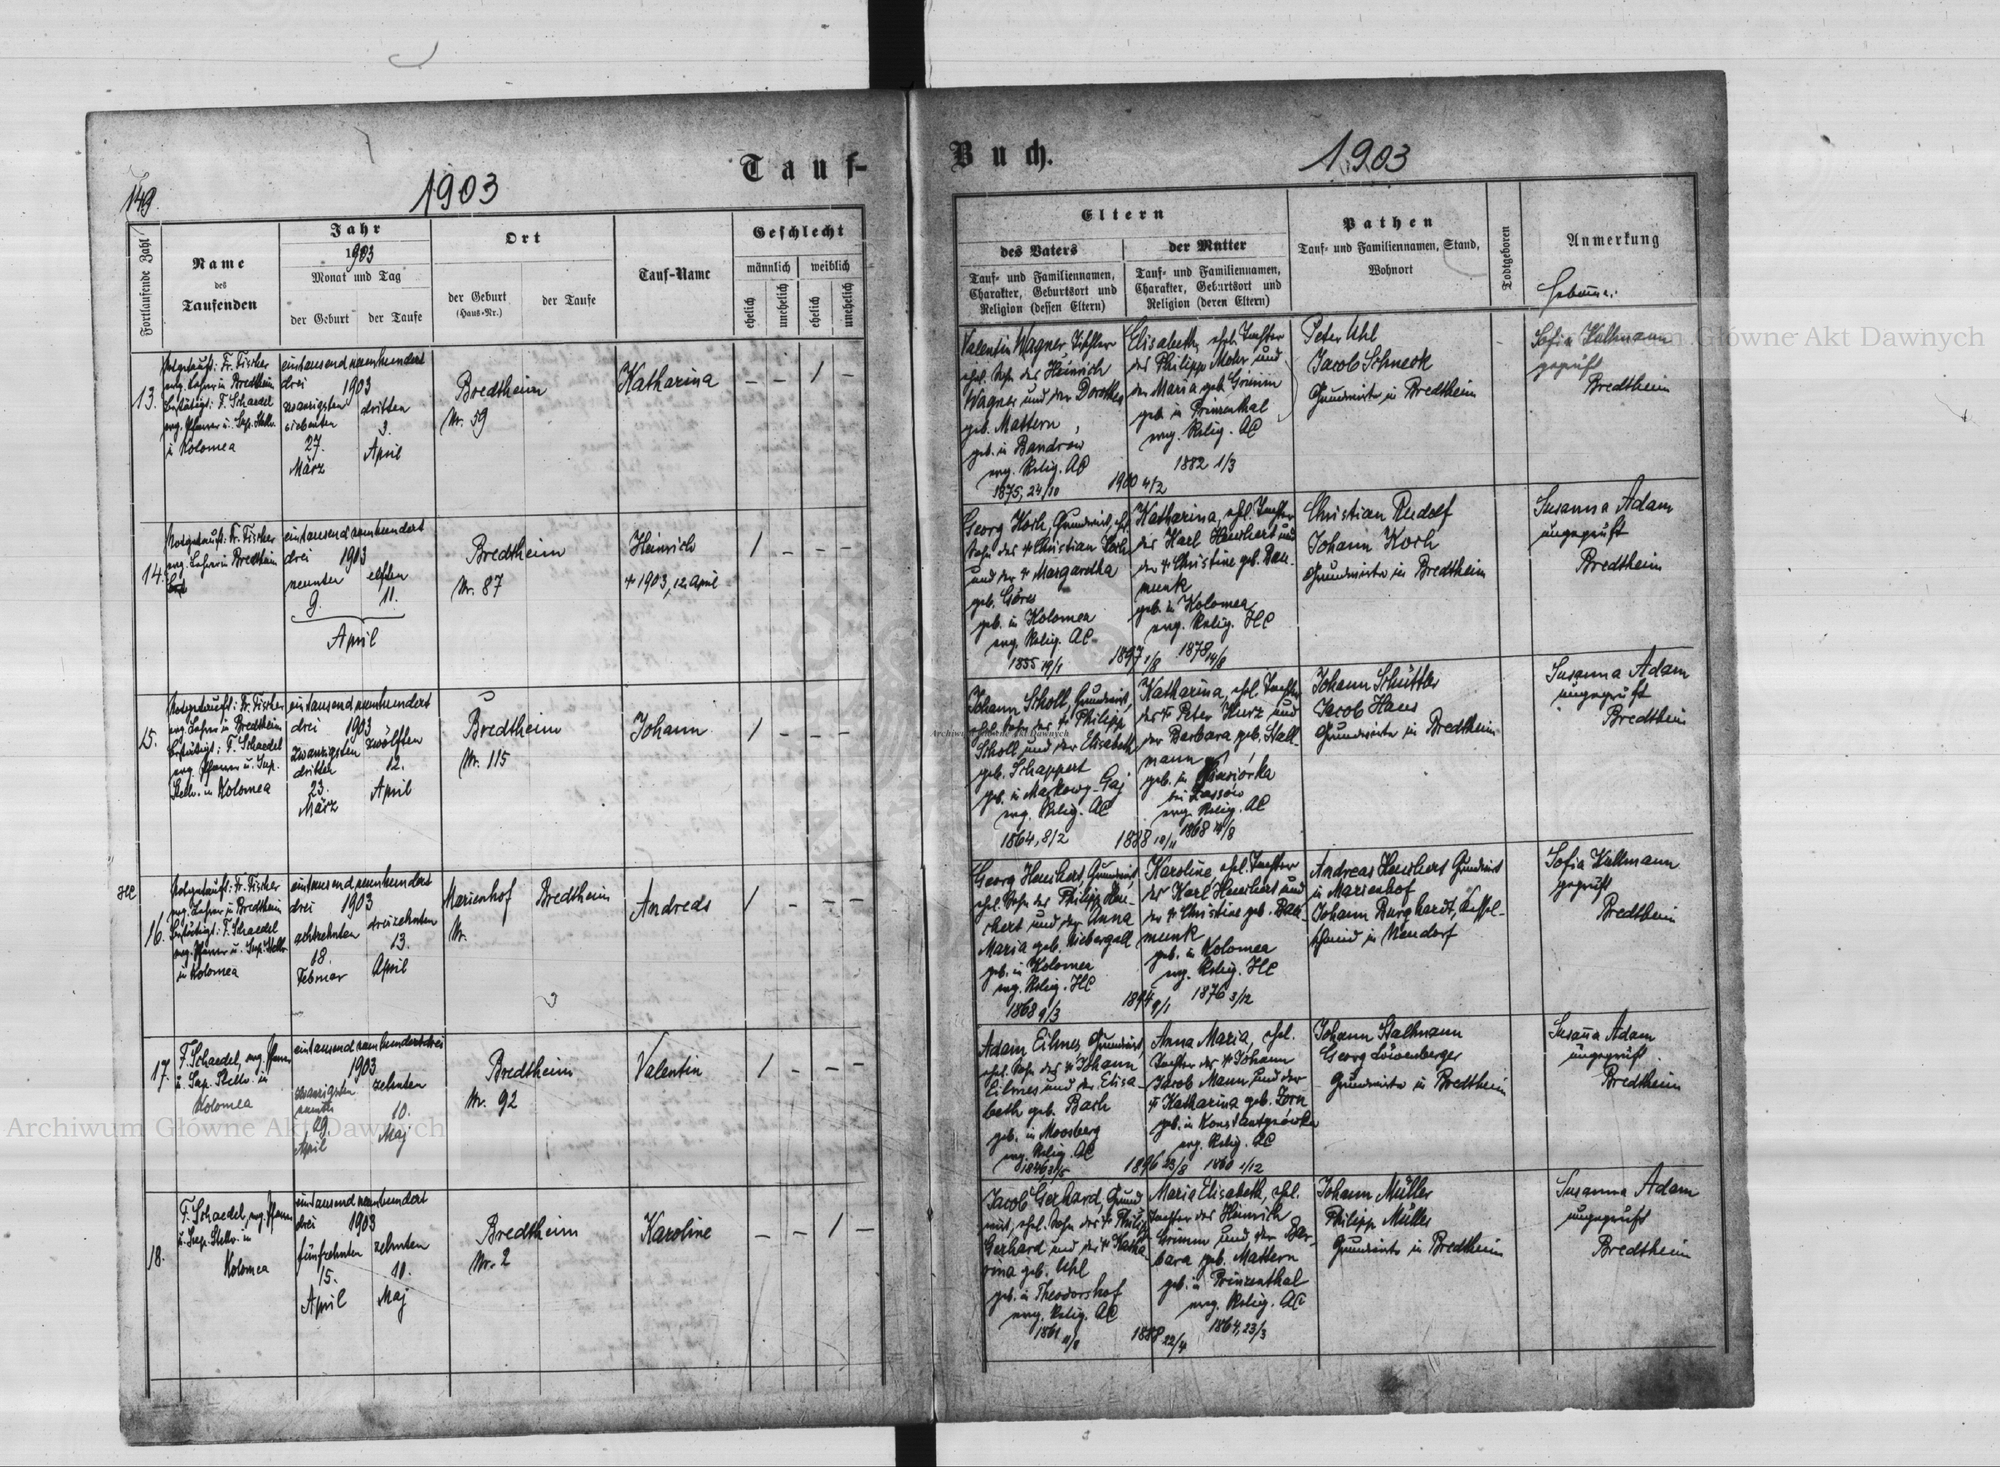 149.
1903
Tauf-
Buch.
1903
Fortlaufende Zahl
Name
des
Taufenden
Jahr
1903
Monat und Tag
der Geburt
der Taufe
Ort
der Geburt
(Haus-Nr.)
der Taufe
Tauf-Name
Geschlecht
männlich
weiblich
ehelich
unehelich
ehelich
unehelich
Eltern
des Vaters
Tauf- und Familiennamen,
Charakter, Geburtsort und
Religion (dessen Eltern)
der Mutter
Tauf- und Familiennamen,
Charakter, Geburtsort und
Religion (deren Eltern)
Pathen
Tauf- und Familiennamen, Stand,
Wohnort
Todtgeboren
Anmerkung
13.
Notgetauft: Fr. Fischer
evg. Lehrer in Bredtheim
Bestätigt: F. Schaedel
evg. Pfarrer u. Sup. Stellv.
in Kolomea
eintausend neunhundert
drei 1903
zwanzigsten
siebenten
27.
März
dritten
3.
April
Bredtheim
Nr. 59
Katharina
– – 1 –
Valentin Wagner, Tischler
ehel. Sohn des Heinrich
Wagner und der Dorothea
geb. Mattern
geb. in Bandrow
evg. Relig. AC
1875, 24/10
1900 4/2
Elisabeth, ehel. Tochter
des Philipp Moler und
der Maria geb. Grimm
geb. in Prinzenthal
evg. Relig. AC
1882 1/3
Peter Uhl
Jacob Schneck
Grundwirte in Bredtheim
Sofia Kullmann
geprüft
Bredtheim
14.
Notgetauft: Fr. Fischer
evg. Lehrer in Bredtheim
eintausend neunhundert
drei 1903
neunter
9.
elften
11.
April
Bredtheim
Nr. 87
Heinrich
+ 1903, 12. April
1 – – –
Georg Koch, Grundwirt, ehel.
Sohn des + Christian Koch
und der + Margaretha
geb. Göres
geb. in Kolomea
evg. Relig. AC
1855 19/1
1897 1/8
Katharina, ehel. Tochter
des Karl Heuchert und
der + Christine geb. Dau-
munk
geb. in Kolomea
evg. Relig. HC
1878 14/8
Christian Rudolf
Johann Koch
Grundwirte in Bredtheim
Susanna Adam
ungeprüft
Bredtheim
15.
Notgetauft: Fr. Fischer
evg. Lehrer in Bredtheim
Bestätigt: F. Schaedel
evg. Pfarrer u. Sup.
Stellv. in Kolomea
eintausend neunhundert
drei 1903
zwanzigsten
dritten
23.
März
zwölften
12.
April
Bredtheim
Nr. 115
Johann
1 – – –
Johann Scholl, Grundwirt,
ehel. Sohn des + Philipp
Scholl und der Elisabeth
geb. Schappert
geb. in Makowy-Gaj
evg. Relig. AC
1864, 8/2
1888 10/11
Katharina, ehel. Tochter
des + Peter Kurz und
der Barbara geb. Stall-
mann
bei Zassow
evg. Relig. AC
Johann Schüttler
Jacob Haus
Grundwirte in Bredtheim
Susanna Adam
ungeprüft
Bredtheim
HC
16.
Notgetauft: Fr. Fischer
evg. Lehrer in Bredtheim
Bestätigt: F. Schaedel
evg. Pfarrer u. Sup. Stellv.
in Kolomea
eintausend neunhundert
drei 1903
achtzehnten
18.
Februar
dreizehnten
13.
April
Marienhof
Nr.
Bredtheim
Andreas
1 – – –
Georg Heuchert, Grundwirt
ehel. Sohn des Philipp Heu-
chert und der Anna
Maria geb. Niebergall
geb. in Kolomea
evg. Relig. HC
1868 9/3
1894 9/1
Karoline, ehel. Tochter
des Karl Heuchert und
der + Christine geb. Dau-
munk
geb. in Kolomea
evg. Relig. HC
1876 3/12
Andreas Heuchert Grundwirt
in Marienhof
Johann Burghardt, Kessel-
schmid in Neudorf
Sofia Kullmann
geprüft
Bredtheim
17.
F. Schaedel, evg. Pfarrer
u. Sup. Stellv. in
Kolomea
eintausend neunhundert drei
1903
zwanzigsten
neunten
29.
April
zehnten
10.
Maj
Bredtheim
Nr. 92
Valentin
1 – – –
Adam Eilmes, Grundwirt,
ehel. Sohn des + Johann
Eilmes und der Elisa-
beth geb. Bach
geb. in Moosberg
evg. Relig. AC
1896 23/8
Anna Maria, ehel.
Tochter des + Johann
Jacob Mann und der
+ Katharina geb. Zorn
geb. in Konstantynówka
evg. Relig. AC
1860 1/12
Johann Stallmann
Georg Löwenberger
Grundwirte in Bredtheim
Susanna Adam
ungeprüft
Bredtheim
18.
F. Schaedel, evg. Pfarrer
u. Sup. Stellv. in
Kolomea
eintausend neunhundert
drei 1903
fünfzehnten
15.
April
zehnten
10.
Maj
Bredtheim
Nr. 2
Karoline
– – 1 –
Jacob Gerhard, Grund
wirt, ehel. Sohn des + Philipp
Gerhard und der + Katha
rina geb. Uhl
geb. in Theodorshof
evg. Relig. AC
1888 22/4
Maria Elisabeth, ehel.
Tochter des Heinrich
Grimm und der Bar-
bara geb. Mattern
geb. in Prinzenthal
evg. Relig. AC
1864, 23/3
Johann Müller
Philipp Müller
Grundwirte in Bredtheim
Susanna Adam
ungeprüft
Bredtheim
Archiwum Główne Akt Dawnych
Archiwum Główne Akt Dawnych
Archiwum Główne Akt Dawnych